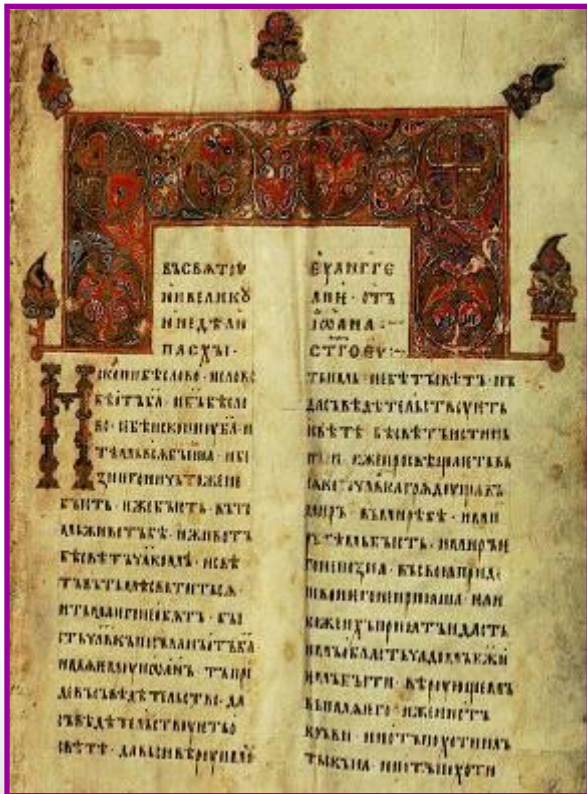 ВЪСВЯТОУ
ИВЕЛИКОУ
НЕДѢЛИ
ПАСХЫ·
Искони бѣ слово · и слово
бѣ отъ ба · и бъ бѣ сло
во · се бѣ искони у ба · и
тѣмь вся быша · и бе
з него ничьтоже не
бысть · иже бысть · въ то
мь животъ бѣ · и животъ
бѣ свѣтъ члкомъ · и свѣ
тъ въ тьмѣ свѣтиться
и тьма ѥго не обятъ · бы
сть члвкъ посъланъ отъ ба
имя ѥмоу иоанъ · тъ при
де въ съвѣдѣтельство · да
съвѣдѣтельствоуѥть о
свѣтѣ · да вьси вѣроу имоу
ЕУАНГГЕ
ЛИѤ · ОТЪ
ІѠАНА ·
СТГОЕУ
ть имь · не бѣ тъ свѣтъ · нъ
да съвѣдѣтельствоуѥть
о свѣтѣ · бѣ свѣтъ истинь
ныи · иже просвѣщаѥть вь
сякого члвка грядоущаго въ
миръ · въ мирѣ бѣ · и ми
ръ тѣмь бысть · и миръ ѥ
го не позна · въ своя приде
и свои ѥго не прияша · ѥли
ко же ихъ приятъ и дасть
имъ область чадомъ бжи
ѥмъ быти · вѣроующемъ
въ имя ѥго · иже не отъ
кръви · ни отъ похоти пль
тьскы · ни отъ похоти